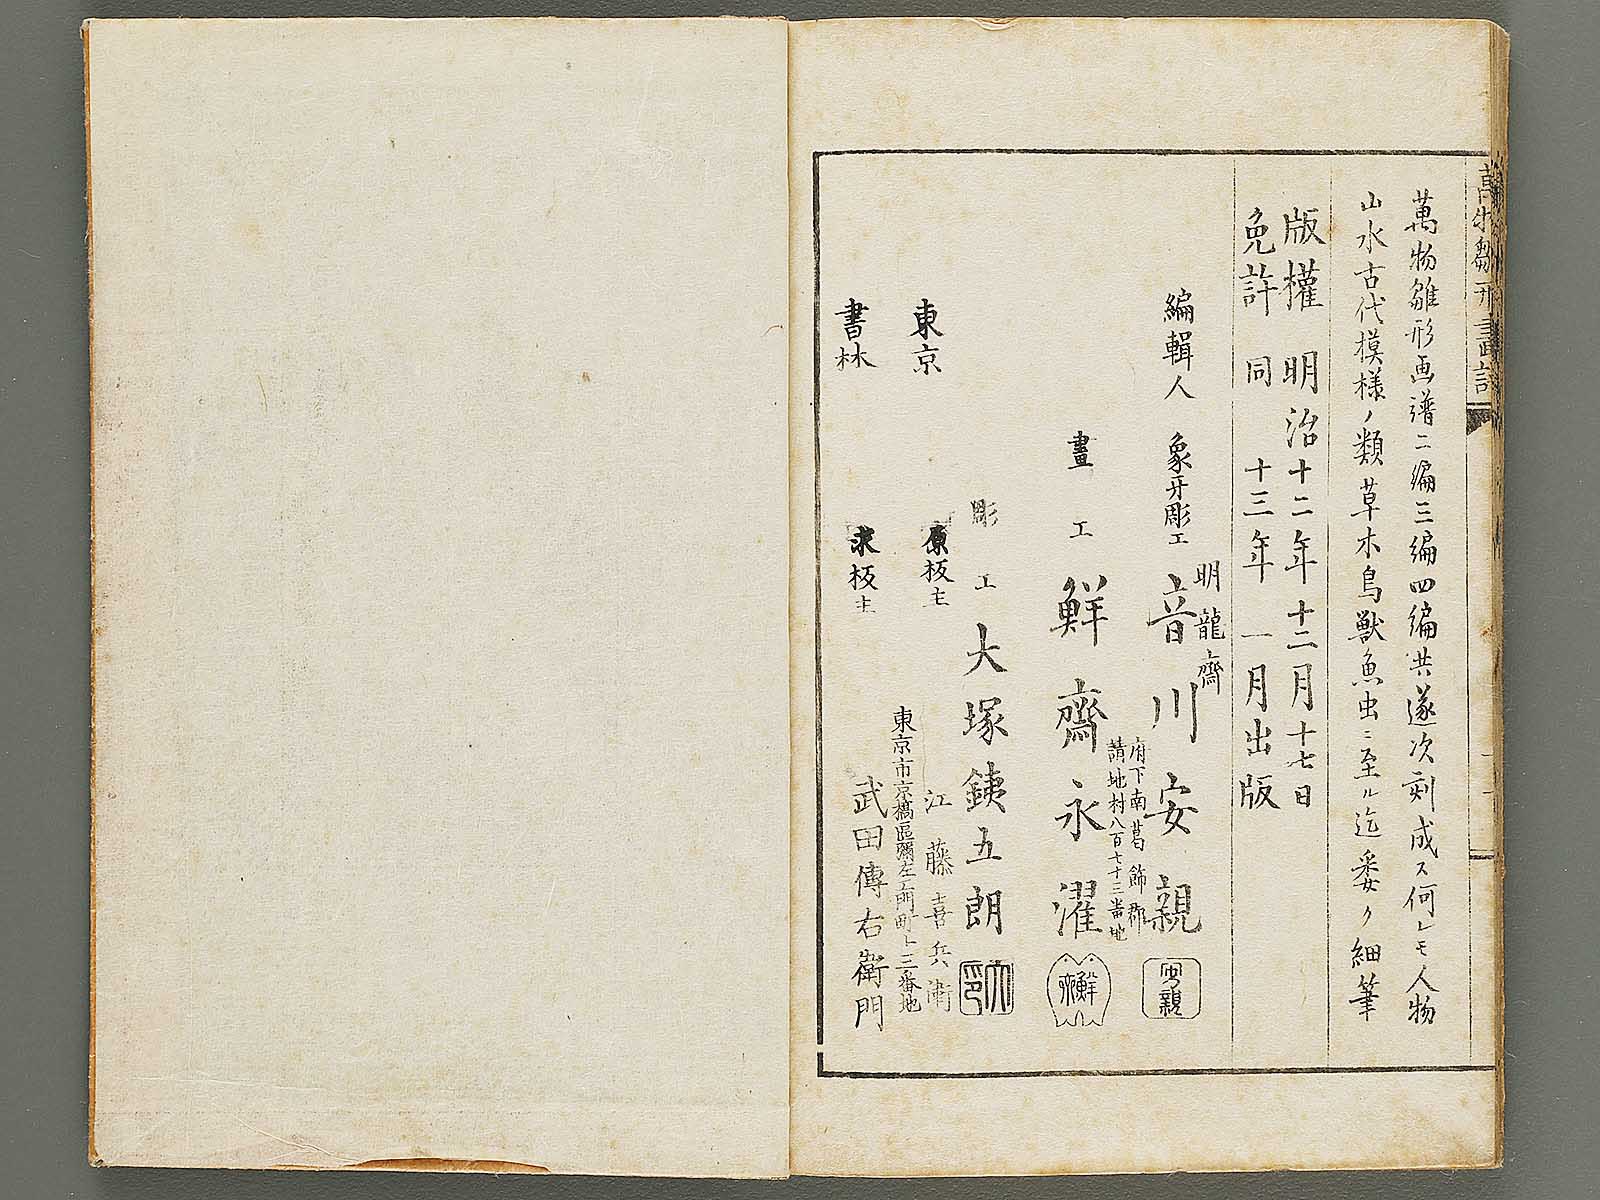 萬物雛形畫譜
萬物雛形画譜二編三編四編共遂次刻成ス何レモ人物
山水古代模様ノ類草木鳥獣魚虫ニ至ル迄委ク細筆
版權 明治十二年十二月十七日
免許 同 十三年 一月出版
編輯人 象牙彫工 明龍齋 音川安親
府下南葛飾郡
請地村八百七十三番地
安親
畫工 鮮齋永濯
鮮齋
彫工 大塚銕五朗
大
印
東京 原板主 江藤喜兵衛
東京市京橋區彌左エ門町十三番地
書林 求板主 武田傳右衛門